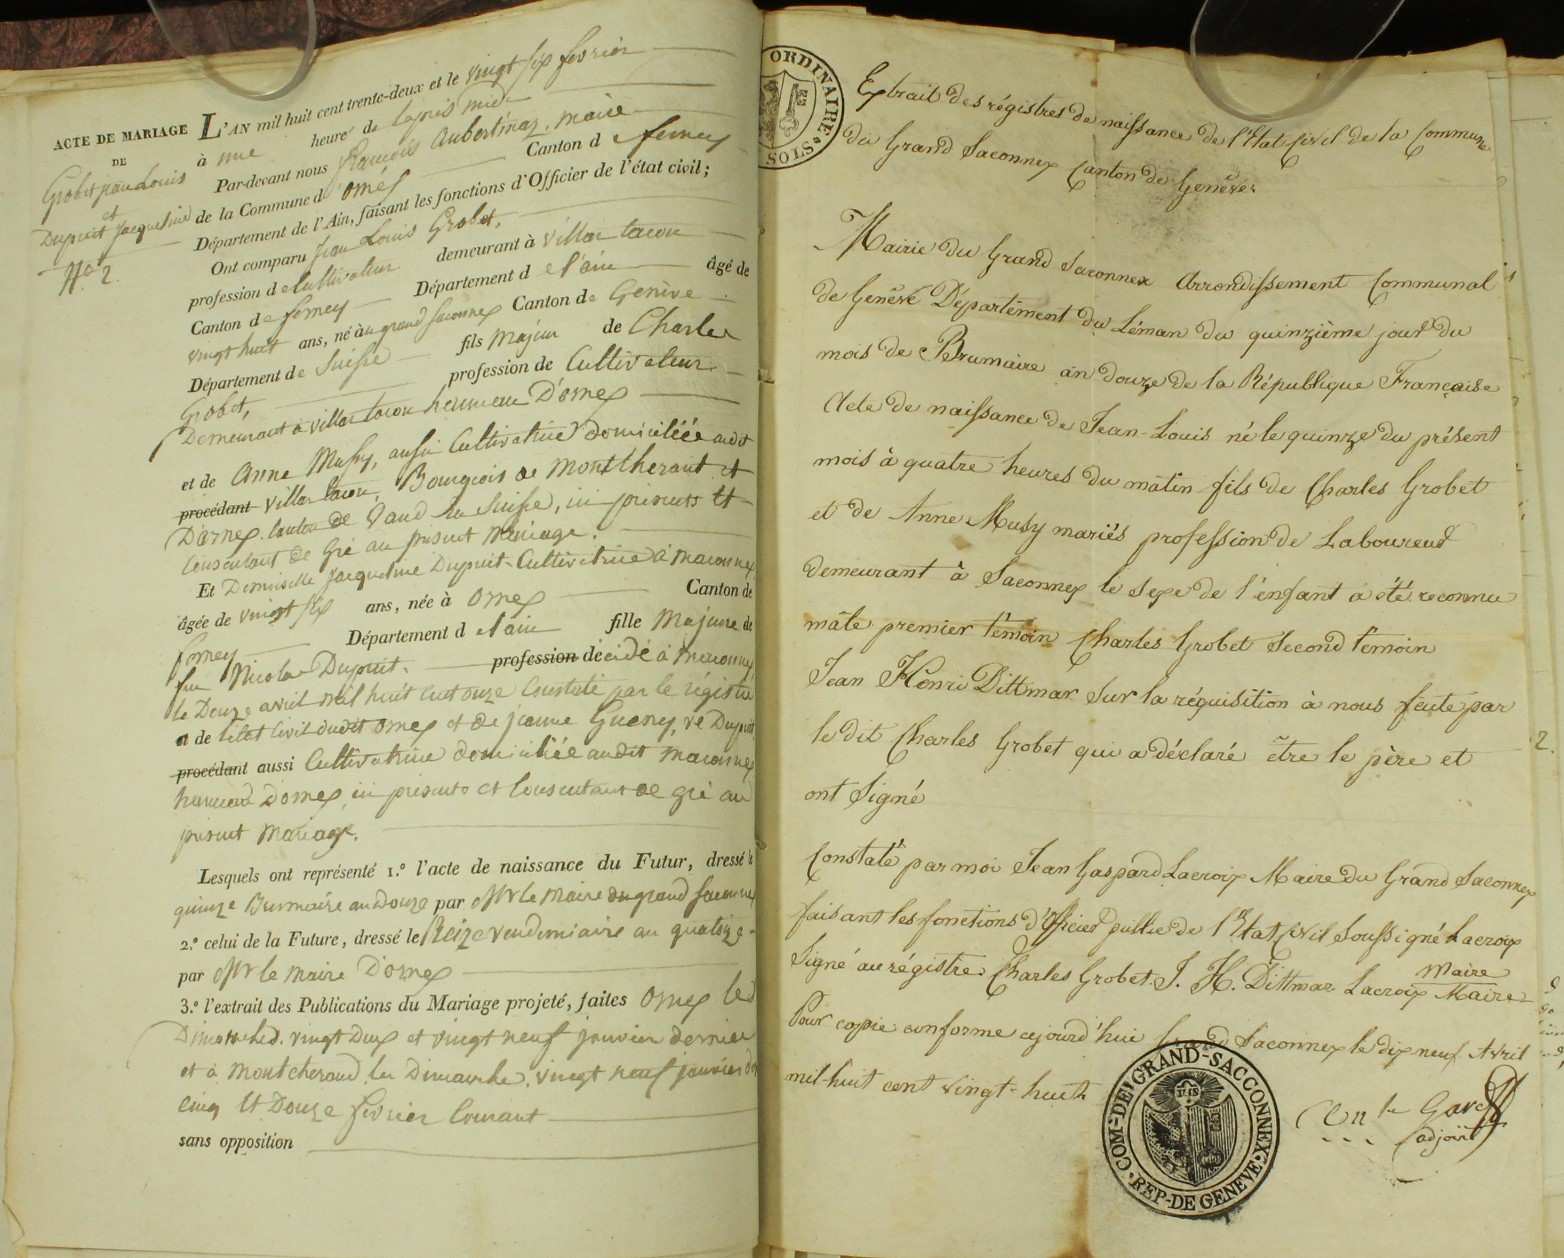 ACTE DE MARIAGE
DE
Grobet jean Louis
et
Dupuit Jacqueline
N.º 2
L'AN mil huit cent trente-deux et le vingt six fevrier
à une heure de lapres midi
Par-devant nous François Aubertinaz, maire
de la Commune d'ornex Canton de ferney
Département de l'Ain, faisant les fonctions d'Officier de l'état civil;
Ont comparu Jean Louis Grobet,
profession de Cultivateur demeurant à villar tacon
Canton de ferney Département de l'ain âgé de
vingt huit ans, né à u grand saconnex Canton de Genève
Département de Suisse fils majeur de Charle
Grobet, profession de Cultivateur
Demeurant à villar tacon hameau D'ornex
et de Anne Mussy, aussi Cultivatrice domiciliée audit
procédant villar tacon, Bourgeois de Montcherant et
D'ornex Canton de Vaud en Suisse, ici présents et
Consentant de Gré au présent Mariage.
Et Demoiselle Jacqueline Dupuit Cultivatrice à maconnex
âgée de vingt six ans, née à Ornex Canton de
ferney Département de l'ain fille Majeure de
feu Nicolas Dupuit profession décidé à maconnex
le Douze avril mil huit cent onze Constaté par le régistre
de l'état Civil dudit ornex et de jeanne Gueney, ve Dupuit
procédant aussi Cultivatrice domiciliée audit maconnex
hameau Dornex, ici présente et Consentant de gré au
présent Mariage.
Lesquels ont représenté 1.º l'acte de naissance du Futur, dressé le
quinze Brumaire an Douze par Mr le Maire du grand saconnex
2.º celui de la Future, dressé le treize vendemiaire an quatorze
par Mr le maire D'ornex
3.º l'extrait des Publications du Mariage projeté, faites Ornex les
Dimanches vingt Deux et vingt neuf janvier dernier
et à Montcherand les Dimanche, vingt neuf janvier der
Cinq et Douze fevrier Courant
sans opposition
ORDINAIRE
SOLS
Extrait des régistres de naissance de l'Etat Civil de la Commune
du Grand Saconnex Canton de Genève.
Mairie du Grand Saconnex Arrondissement Communal
de Genève Département du Léman du quinzième jour du
mois de Brumaire an douze de la République Française
Acte de naissance de Jean-Louis né le quinze du présent
mois à quatre heures du mâtin fils de Charles Grobet
et de Anne Musy mariés profession de Laboureur
demeurant à Saconnex le sexe de l'enfant a été reconnu
mâle premier témoin Charles Grobet second témoin
Jean Henri Dittmar sur la réquisition à nous faite par
le dit Charles Grobet qui a déclaré être le père et
ont signé
Constaté par moi Jean Gaspard Lacroix Maire du Grand Saconnex
faisant les fonctions d'Officier public de l'Etat Civil soussigné Lacroix
Maire
Signé au régistre Charles Grobet J. H. Dittmar Lacroix Maire
Pour copie conforme cejourd'hui Grand Saconnex le dix neuf Avril
mil-huit cent vingt-huit
adjoint
COM-DE GRAND-SACCONNEX
REP-DE GENEVE
2.